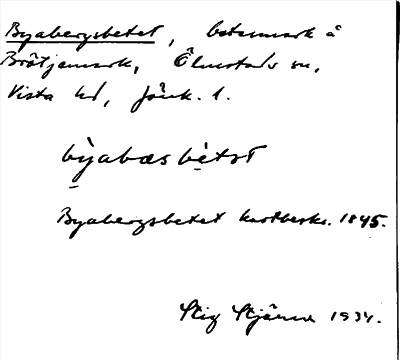 Byabergsbetet, betesmark å
Brötjemark, Ölmstads sn,
Vista hd, Jönk. l.
bỳabæsbètət
Byabergsbetet kartbeskr. 1845.
Stig Stjärne 1934.